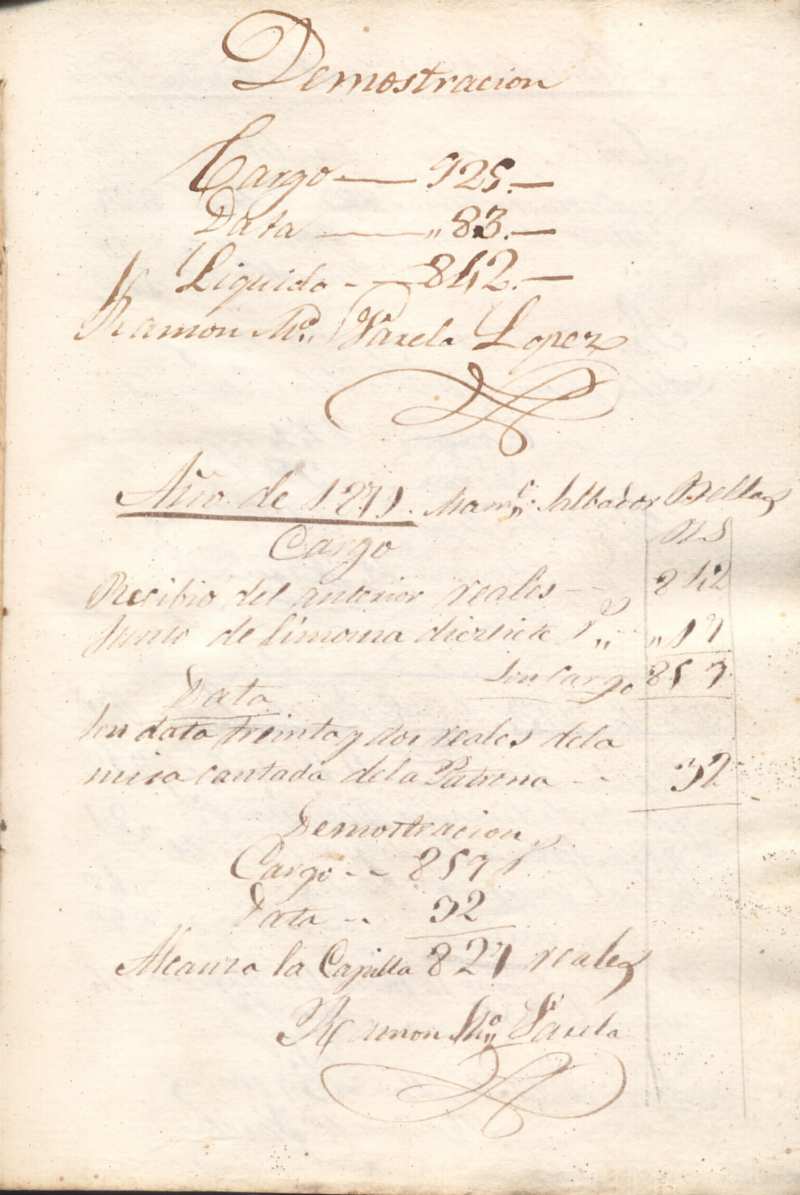 Demostracion
Cargo — 925.—
Data — „ 83.—
Liquido - — 842.—
Ramon Mª Varela Lopez
Año de 1871. Mam.. Salbador Bella
Cargo RS
Recibio del anterior reales — 842
Junto de limosna diezsiete r„ „ 17
Son cargo 857
Data
Son data treinta y dos reales dela
misa cantada dela Patrona - - 32
Demostracion
Cargo - - 857
Data - - 32
Alcanza la Capilla 827 reales
Ramon Mª Varela